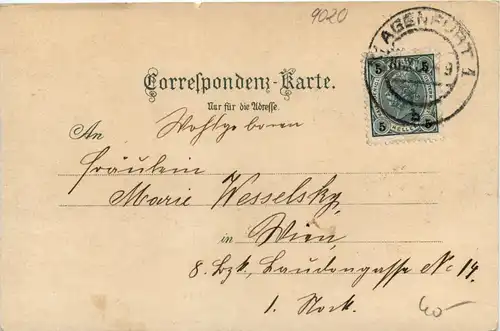 9020
KLAGENFURT 1
5 5
5 HELLER 5
Correspondenz-Karte.
Nur für die Adresse.
An Wohlgeboren
Fräulein
Marie Wesselsky,
in Wien,
8. Bzk, Laudongasse No 14.
1. Stock.